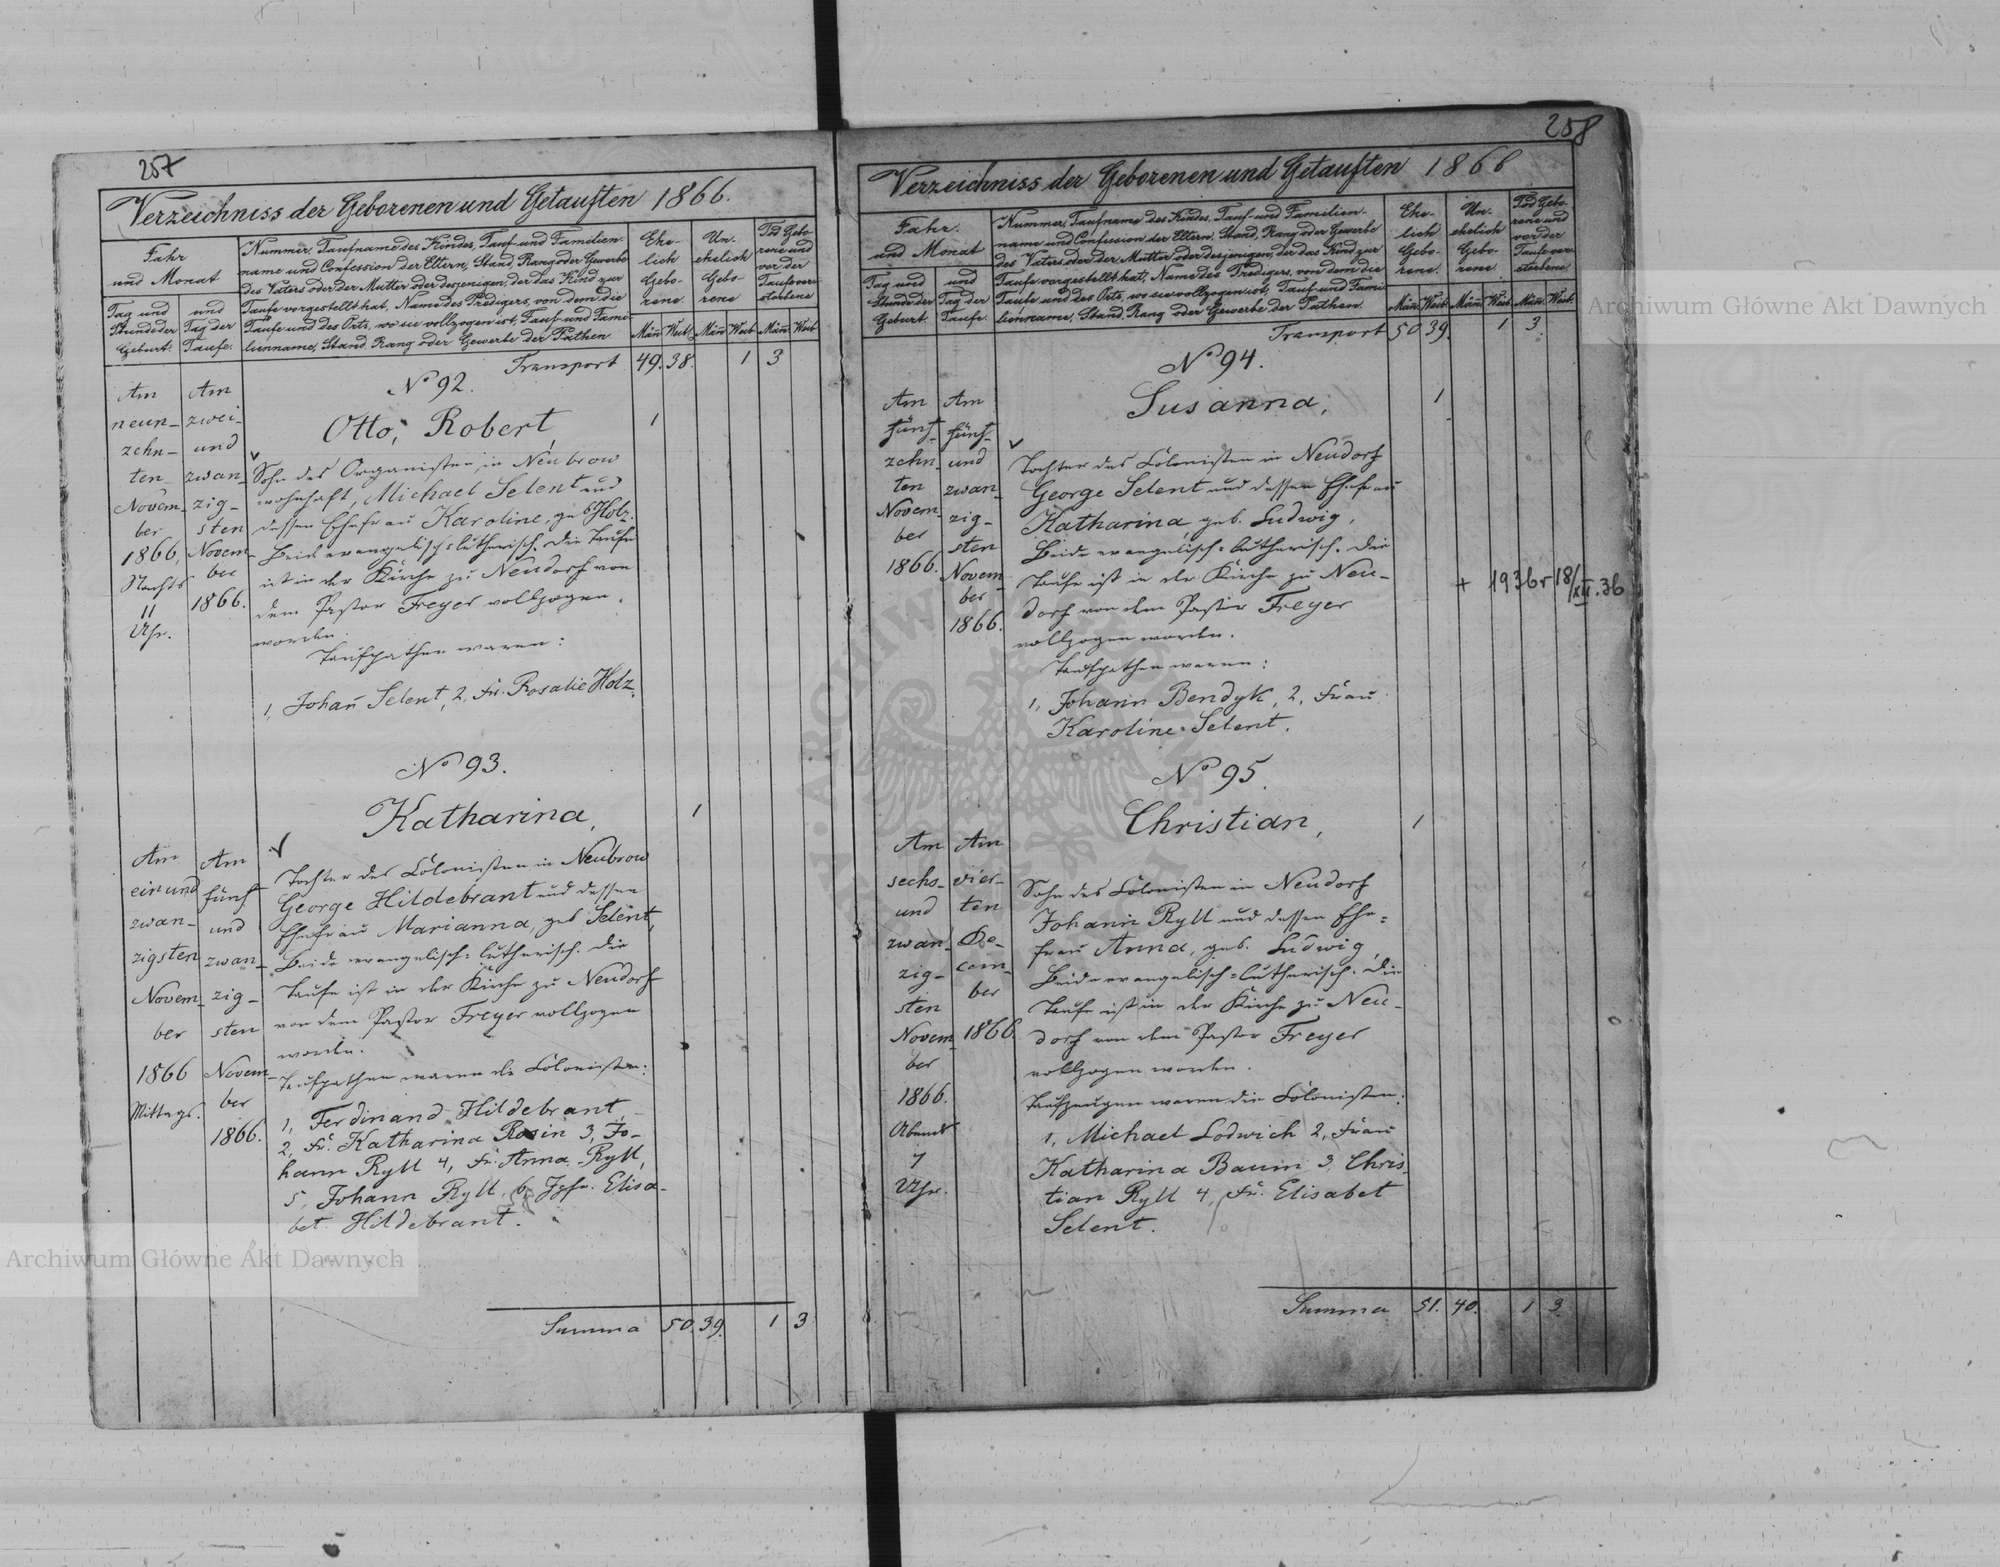 257
Verzeichniss der Geborenen und Getauften 1866.
Jahr
und Monat
Tag und
Stunde der
Geburt.
und
Tag der
Taufe.
Nummer, Taufname des Kindes, Tauf- und Familien-
name und Confession der Eltern, Stand, Rang oder Gewerbe
des Vaters oder der Mutter oder desjenigen, der das Kind zur
Taufe vorgestellt hat, Name des Predigers, von dem die
Taufe und des Orts, wo sie vollzogen ist, Tauf- und Fami-
lienname, Stand, Rang oder Gewerbe der Pathen
Ehe-
lich
Gebo-
rene
Un-
ehelich
Gebo-
rene
Tod Gebo-
rene und
vor der
Taufe ver-
storbene
Män̄ Weib. Män̄ Weib. Män̄ Weib
Transport 49. 38. 1 3
Am
neun-
zehn-
ten
Novem-
ber
1866,
Nachts
11
Uhr.
Am
zwei-
und
zwan-
zig-
sten
Novem-
ber
1866.
No 92.
Otto, Robert, 1
Sohn des Organisten, in Neubrow
wohnhaft, Michael Selent und
dessen Ehefrau Karoline, geb Holz.
Beide evangelisch-lutherisch. Die Taufe
ist in der Kirche zu Neudorf von
dem Pastor Freyer vollzogen
worden.
Taufpathen waren:
1, Johan̄ Selent, 2, Fr. Rosalie Holz.
No 93.
Katharina, 1
Am
ein und
zwan-
zigsten
Novem-
ber
1866
Mittags.
Am
fünf
und
zwan-
zig-
sten
Novem-
ber
1866.
Tochter des Colonisten in Neubrow
George Hildebrant und dessen
Ehefrau Marianna, geb Selent,
Beide evangelisch-lutherisch. Die
Taufe ist in der Kirche zu Neudorf
von dem Pastor Freyer vollzogen
worden.
Taufpathen waren die Colonisten:
1, Ferdinand Hildebrant,
2, Fr. Katharina Rosin 3, Jo-
hann Ryll 4, Fr. Anna Ryll,
5, Johann Ryll, 6, Jgfr. Elisa-
bet Hildebrant.
Summa 50. 39. 1 3.
258
Verzeichniss der Geborenen und Getauften 1866
Jahr.
und Monat
Tag und
Stunde der
Geburt.
und
Tag der
Taufe.
Nummer, Taufname des Kindes, Tauf- und Familien-
name und Confession der Eltern, Stand, Rang oder Gewerbe
des Vaters oder der Mutter oder desjenigen, der das Kind zur
Taufe vorgestellt hat, Name des Predigers, von dem die
Taufe und des Orts, wo sie vollzogen ist, Tauf- und Fami-
lienname, Stand, Rang oder Gewerbe der Pathen
Ehe-
lich
Gebo-
rene.
Un-
ehelich
Gebo-
rene
Tod Gebo-
rene und
vor der
Taufe ver-
storbene.
Män̄ Weib. Män̄ Weib. Män̄ Weib.
Transport 50 39. 1 3.
No 94.
Susanna, 1
Am
fünf-
zehn-
ten
Novem-
ber
1866.
Am
fünf-
und
zwan-
zig-
sten
Novem-
ber
1866.
Tochter des Colonisten in Neudorf
George Selent und dessen Ehefrau
Katharina, geb. Ludwig,
Beide evangelisch-lutherisch. Die
Taufe ist in der Kirche zu Neu-
dorf von dem Pastor Freyer
vollzogen worden.
+ 1936 r 18/XII.36
Taufpathen waren:
1, Johann Bendyk, 2, Frau
Karoline Selent.
No 95.
Christian, 1
Am
sechs-
und
zwan-
zig-
sten
Novem-
ber
1866.
Abends
7
Uhr.
Am
vier-
ten
De-
cem-
ber
1866.
Sohn des Colonisten in Neudorf
Johann Ryll und dessen Ehe-
frau Anna, geb. Ludwig,
Beide evangelisch-lutherisch. Die
Taufe ist in der Kirche zu Neu-
dorf von dem Pastor Freyer
vollzogen worden.
Taufzeugen waren die Colonisten:
1, Michael Lodwich 2, Frau
Katharina Baum 3, Chris-
tian Ryll 4, Fr. Elisabet
Selent.
Summa 51. 40. 1 3.
Archiwum Główne Akt Dawnych
Archiwum Główne Akt Dawnych